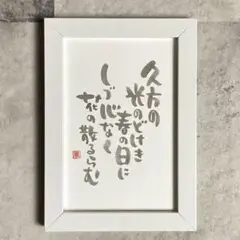 久方の
光のどけき
春の日に
しづ心なく
花の散るらむ